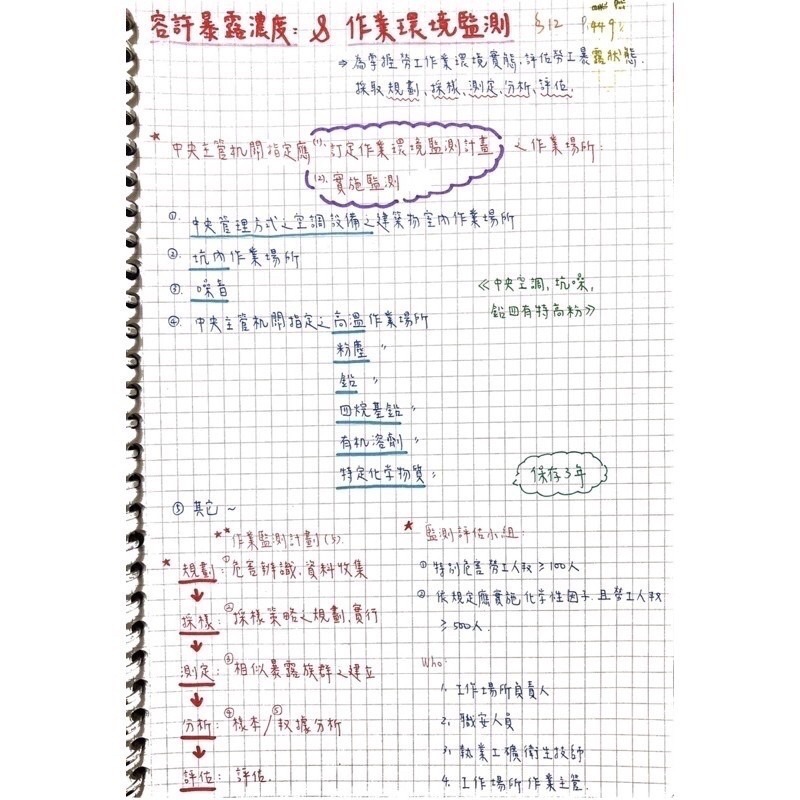 容許暴露濃度: & 作業環境監測 §12 P.449
⇒為掌握勞工作業環境實態,評估勞工暴露狀態.
採取規劃、採樣、測定、分析、評估.
*中央主管机関指定應 (1).訂定作業環境監測計畫 之作業場所:
(2).實施監測
①. 中央管理方式之空調設備之建築物室內作業場所
②. 坑內作業場所
③. 噪音
④. 中央主管机関指定之高溫作業場所
粉塵 〃
鉛 〃
四烷基鉛 〃
有机溶劑 〃
特定化学物質 〃
《中央空調,坑噪,
鉛四有特高粉》
保存3年
⑤ 其它~
**作業監測計劃(5).
* 規劃: ①危害辨識,資料收集
↓
採樣: ②採樣策略之規劃,實行
↓
測定: ③相似暴露族群之建立
↓
分析: ④樣本/⑤数據分析
↓
評估: 評估.
* 監測評估小組:
① 特別危害勞工人数≥100人
② 依規定應實施化学性因子.且勞工人数
≥500人.
Who:
1. 工作場所負責人
2. 職安人員
3. 執業工礦衛生技師
4. 工作場所作業主管.